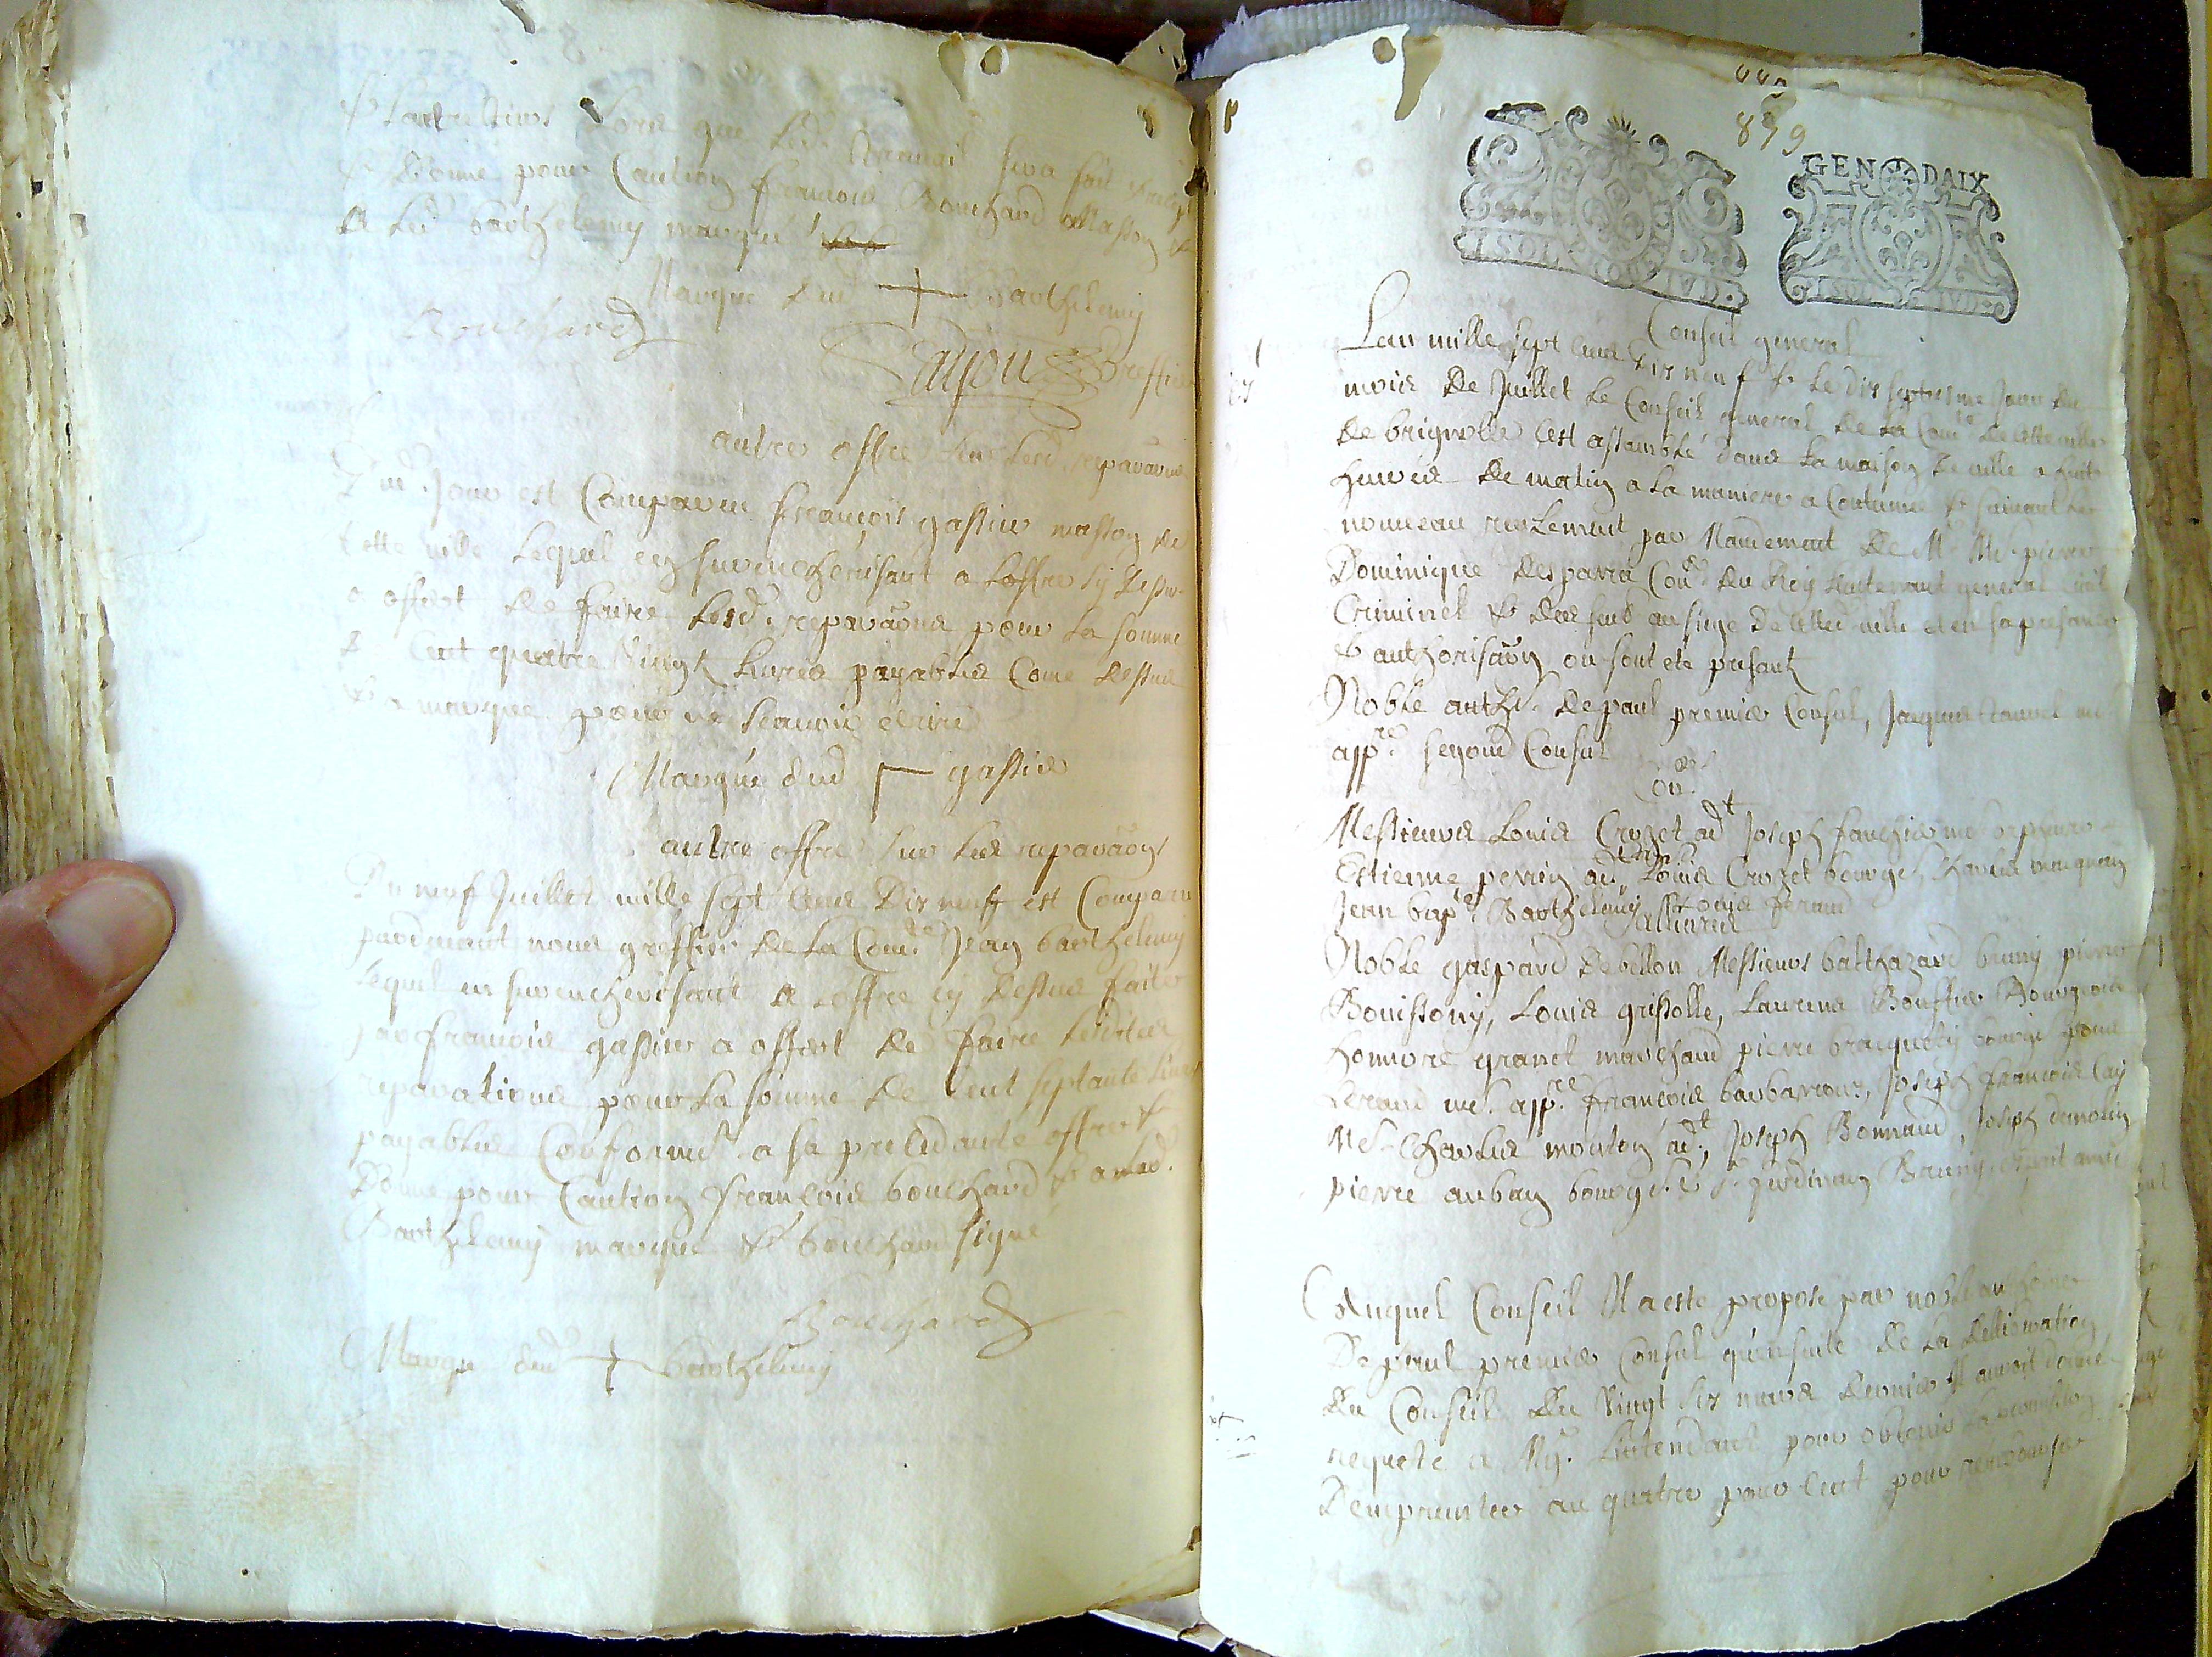 & lautre tiers lors que led. travail sera fait
& donne pour Caution francois Bouchard Masson &
a led barthelemy marqué
Marque dud + Barthelemy
Bouchard
Greffier
autre offre sur led. reparaons
Dud. Jour est Comparu francois gassier masson de
cette ville lequel en surencherisant a loffre sy dessus
a offert de faire lesd. reparaons pour la somme
de Cent quatre vingt livres payables Come dessus
& a marqué pour ne scavoir écrire
Marque dud gassier
autre offre sur lesd reparaons
Du neuf Juillet mille sept cens Dix neuf est Comparu
pardevant nous greffier de la Com.té Jean barthelemy
lequel en surencherisant a loffre cy dessus faite
par francois gassier a offert de faire lesdites
reparations pour la somme de cent septante livres
payables Conforme.t a sa precedante offre &
Donne pour Caution francois bouchard & a led.
Barthelemy marqué & bouchard signé
Bouchard
Marque dud + barthelemy
879
GEN DAIX
Conseil general
Lan mille sept cens Dix neuf & le dix septiesme Jour du
mois de Juillet le Conseil general de la Com.té de cette ville
de brignolle cest assemblé dans la maison de ville a huit
heures de matin a la maniere a Coutumée & suivant le
nouveau reglement par Mandement de Mr Me pierre
Dominique desparra Con.er du Roy lieutenant general civil
Criminel & des sub.s au siege de cetted ville et en sa presance
& authorisaon ou sont eté presant
Noble anth.e depaul premier Consul, Jacques
app.re segond Consul
Messieurs Louis Crozet ad.t Joseph fauchier me orphevre
Estienne perrin ad.t Louis Crozet bourge, Charles
Jean bap.te Barthelemy Louis feraud
Noble gaspard debellon Messieurs balthazard bruny pierre
Bouissony, Louis grisolle, Laurens Bouffier Bourgeois
honnoré granet marchand pierre braquety bourge
feraud me. app.re francois barbarroux, Joseph francois Caÿ
Me. Charles mouton ad.t, Joseph Bonnaud, Joseph demolin
pierre auban bourge. &
Auquel Conseil Il a esté proposé par noble anthoine
Depaul premier Consul quensuite de la deliberation
du Conseil du vingt six mars dernier Il auroit donné
requete a Mg.r Lintendant pour obtenir la permission
Demprunter au quatre pour cent pour rembourser